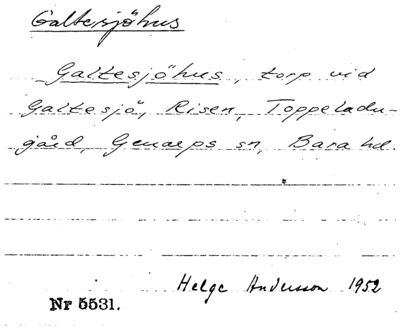 Galtesjöhus
Galtesjöhus, torp vid
Galtesjö, Risen, Toppeladu-
gård, Genarps sn, Bara hd.
Helge Andersson 1952
Nr 5531.